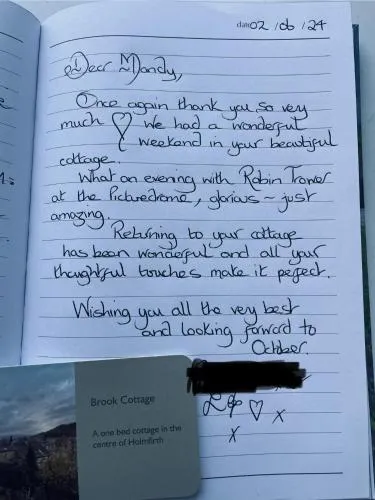 date 02/06/24
Dear Mandy,
Once again thank you so very
much ♡ We had a wonderful
weekend in your beautiful
cottage.
What an evening with Robin Trower
at the Picturedrome, glorious ~ just
amazing.
Returning to your cottage
has been wonderful and all your
thoughtful touches make it perfect.
Wishing you all the very best
and looking forward to
October.
♡ x
x
Brook Cottage
A one bed cottage in the
centre of Holmfirth